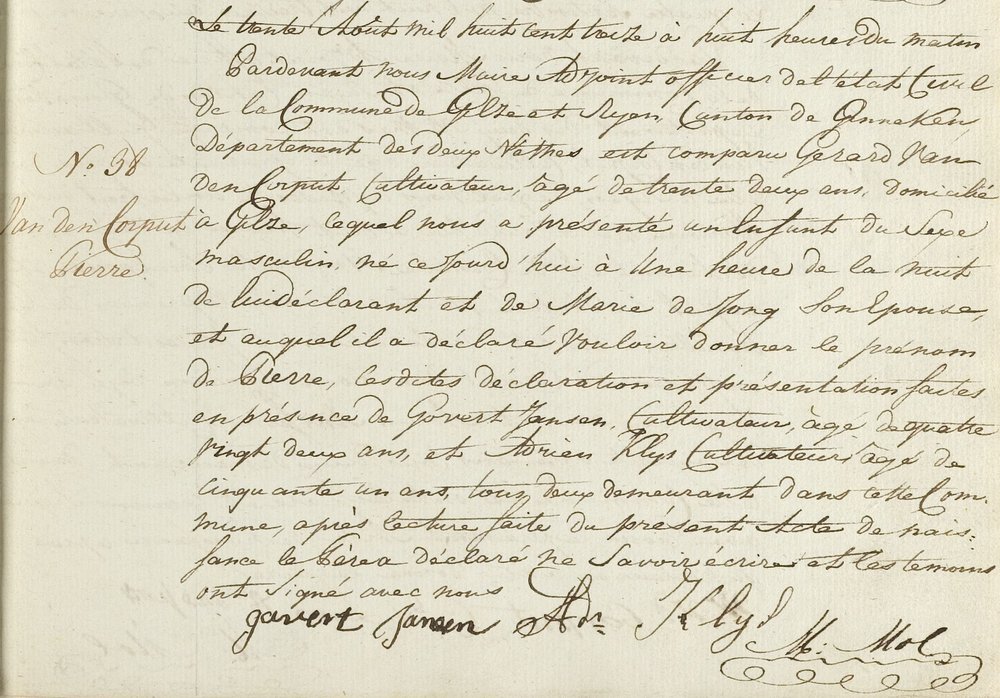 Le trente Août mil huit cent treize à huit heures du matin
Pardevant nous Maire Adjoint officier de l'état Civil
de la Commune de Gilze et Ryen, Canton de Ginneken
Département des deux Nèthes est comparu Gerard Van
den Corput, Cultivateur, âgé de trente deux ans, domicilié
à Gilze, lequel nous a présenté un Enfant du Sexe
masculin, né ce Jourd'hui à Une heure de la nuit
de lui déclarant et de Marie de Jong Son Epouse,
et auquel il a déclaré Vouloir donner le prénom
de Pierre, lesdites déclaration et présentation faites
en présence de Govert Jansen, Cultivateur, âgé de quatre
vingt deux ans, et Adrien Klys Cultivateur, âgé de
cinquante un ans, tous deux demeurant dans cette Com-
mune, après lecture faite du présent Acte de nais-
sance le Père a déclaré ne Savoir écrire et les temoins
ont Signé avec nous
N.o 38
Van den Corput
Pierre
gavert Jansen Adr. Klys
M: Mol